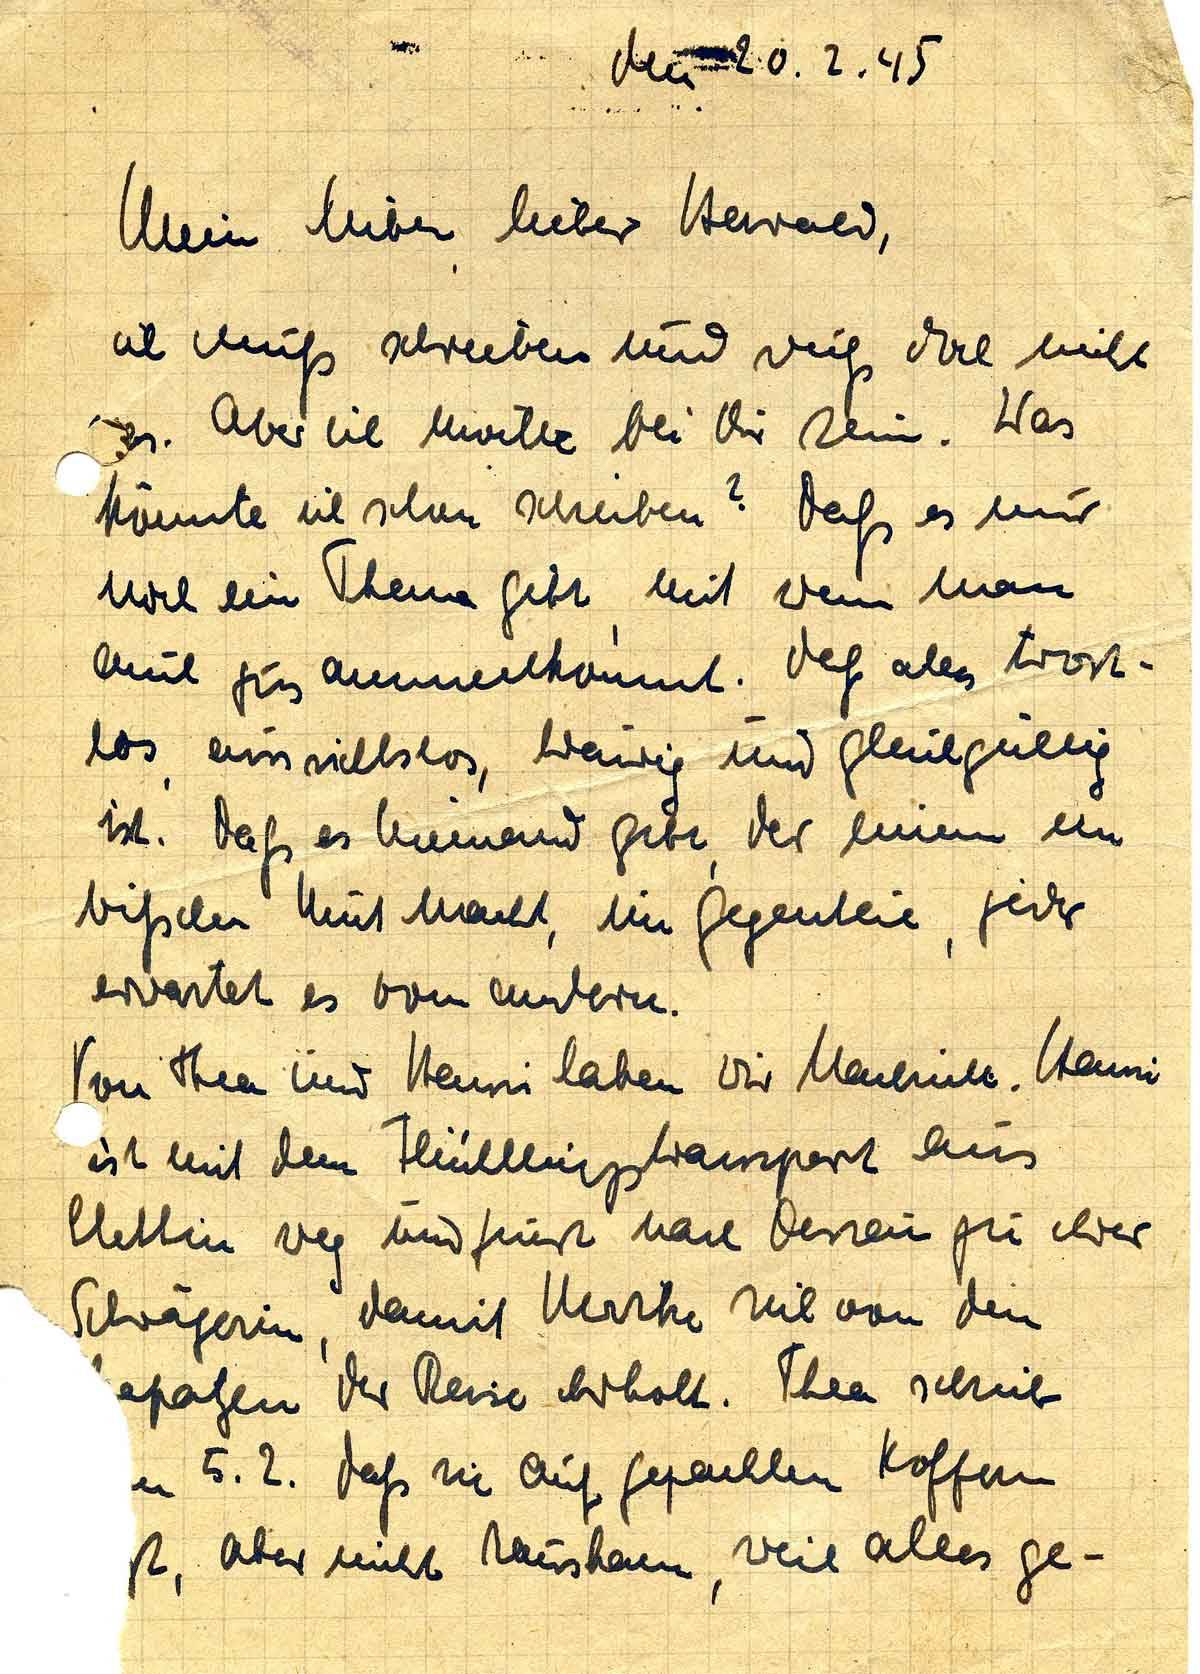 den 20.2.45
Mein lieber, lieber Herwald,
ich muß schreiben und weiß doch nicht
was. Aber ich möchte bei Dir sein. Was
könnte ich schon schreiben? Daß es nur
noch ein Thema gibt, mit wem man
auch zusammenkommt. Daß alles trost-
los, aussichtslos, traurig und gleichgültig
ist. Daß es niemand gibt, der einem ein
bißchen Mut macht, im Gegenteil, jeder
erwartet es vom andern.
Von Thea und Hanni haben wir Nachricht. Hanni
ist mit dem Flüchtlingstransport aus
Stettin weg und zuerst nach Dessau zu ihrer
Schwägerin, damit sich von den
apazen der Reise erholt. Thea schrieb
n 5.2. daß sie auf gepackten Koffern
zt, aber nicht rauskann, weil alles ge-